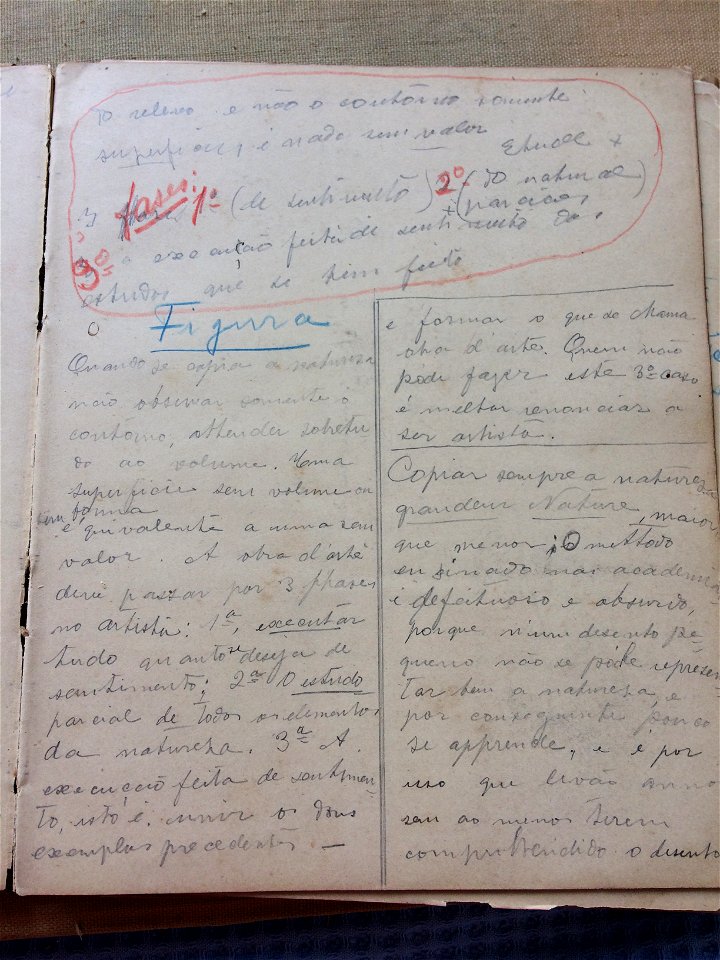 O relevo e não o contorno somente
superficies, é nada sem valor
Etude +
3 phases fases: 1º (de sentimento) 2º (do natural)
+ (parciaes
3º a execução feita de sentimento dos
estudos que se tem feito
Figura
Quando se copia a natureza
não observar somente o
contorno, attender sobretu-
do ao volume. Uma
superficie sem volume ou
sem forma
é equivalente a uma sem
valor. A obra d'arte
deve passar por 3 phases
no artista: 1ª, executar
tudo quanto se deseja de
sentimento; 2ª O estudo
parcial de todos os elementos
da natureza. 3ª A
execucção feita de sentimen-
to, isto é, unir os dous
exemplos precedentes —
e formar o que se chama
obra d'arte. Quem não
póde fazer este 3º caso
é melhor renunciar a
ser artista.
Copiar sempre a natureza
grandeur Nature, maior
que menor; O methodo
ensinado nas academias
é defeituoso e absurdo,
porque n'um desenho pe-
queno não se póde represen
tar bem a natureza, e
por conseguinte pouco
se apprende, e é por
isso que levão annos
sem ao menos terem
comprehendido o desenho